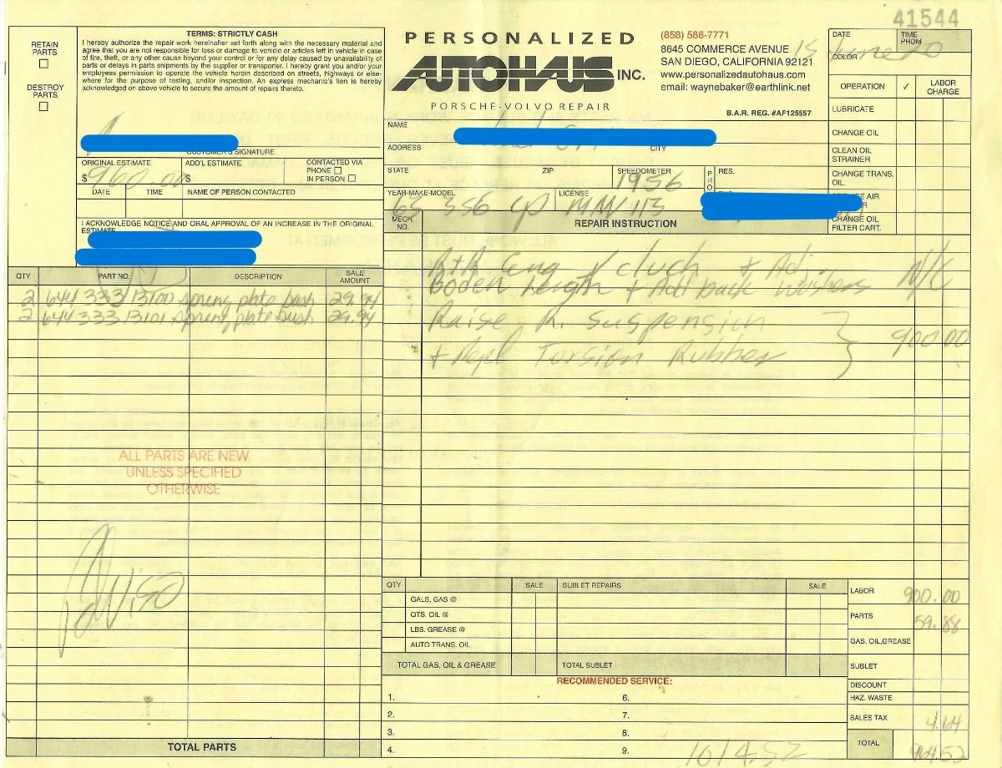 41544
RETAIN PARTS
DESTROY PARTS
TERMS: STRICTLY CASH
I hereby authorize the repair work hereinafter set forth along with the necessary material and
agree that you are not responsible for loss or damage to vehicle or articles left in vehicle in case
of fire, theft, or any other cause beyond your control or for any delay caused by unavailability of
parts or delays in parts shipments by the supplier or transporter. I hereby grant you and/or your
employees permission to operate the vehicle herein described on streets, highways or else-
where for the purpose of testing, and/or inspection. An express mechanic's lien is hereby
acknowledged on above vehicle to secure the amount of repairs thereto.
CUSTOMER'S SIGNATURE
ORIGINAL ESTIMATE
$960.00
ADD'L ESTIMATE
$
CONTACTED VIA
PHONE
IN PERSON
DATE TIME NAME OF PERSON CONTACTED
I ACKNOWLEDGE NOTICE AND ORAL APPROVAL OF AN INCREASE IN THE ORIGINAL
ESTIMATE
PERSONALIZED
AUTOHAUS INC.
PORSCHE-VOLVO REPAIR
(858) 586-7771
8645 COMMERCE AVENUE
SAN DIEGO, CALIFORNIA 92121
www.personalizedautohaus.com
email: waynebaker@earthlink.net
B.A.R. REG. #AF125557
NAME
ADDRESS CITY
STATE ZIP SPEEDOMETER RES.
1956
YEAR-MAKE-MODEL LICENSE
MECH. NO. REPAIR INSTRUCTION
DATE TIME PROM
COLOR
OPERATION ✓ LABOR CHARGE
LUBRICATE
CHANGE OIL
CLEAN OIL STRAINER
CHANGE TRANS. OIL
AIR
CHANGE OIL FILTER CART.
QTY PART NO. DESCRIPTION SALE AMOUNT
2 644 333 13100 spring plate bush 29.94
2 644 333 13101 spring plate bush 29.94
R+R Eng clutch + Adj.
Boden Length + Add back washers N/C
Raise R. Suspension
+ Repl Torsion Rubber 900.00
ALL PARTS ARE NEW
UNLESS SPECIFIED
OTHERWISE
QTY SALE SUBLET REPAIRS SALE
GALS, GAS @
QTS. OIL @
LBS. GREASE @
AUTO TRANS. OIL
TOTAL GAS, OIL & GREASE TOTAL SUBLET
RECOMMENDED SERVICE:
1. 6.
2. 7.
3. 8.
4. 9.
LABOR 900.00
PARTS 59.88
GAS, OIL, GREASE
SUBLET
DISCOUNT
HAZ. WASTE
SALES TAX 4.64
TOTAL 964.52
TOTAL PARTS